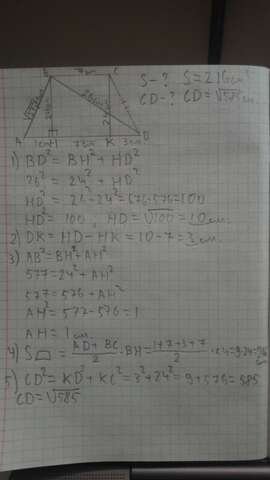 B 7см C
S-? S=216см²
CD-? CD=√585см
√577см 24см 26см 24
A 1см H 7см K 3см D
1) BD²=BH²+HD²
26²=24²+HD²
HD²=26²-24²=676-576=100
HD²=100, HD=√100=10см.
2) DK=HD-HK=10-7=3см.
3) AB²=BH²+AH²
577=24²+AH²
577=576+AH²
AH²=577-576=1
AH=1см.
4) S = AD+BC/2 · BH = 1+7+3+7/2 · 24=9·24=216
5) CD²=KD²+KC²=3²+24²=9+576=585
CD=√585